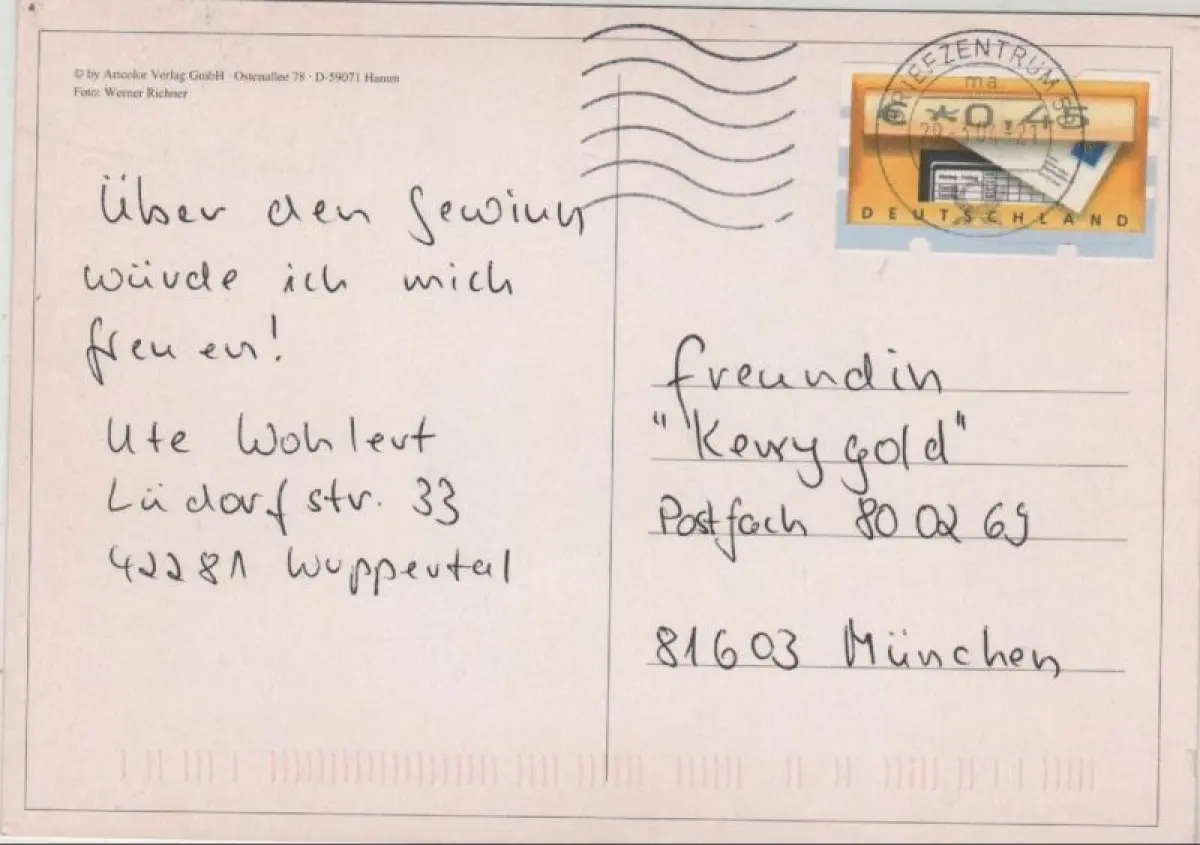 © by Artcolor Verlag GmbH · Ostenallee 78 · D-59071 Hamm
Foto: Werner Richner
Über den Gewinn
würde ich mich
freuen!
Ute Wohlert
Lüdorfstr. 33
42281 Wuppertal
BRIEFZENTRUM
ma
€ *0,45
DEUTSCHLAND
freundin
"Kerrygold"
Postfach 80 02 69
81603 München